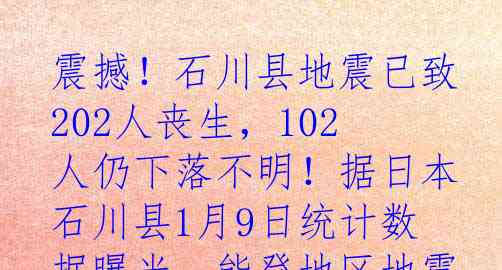 震撼！石川县地震已致
202人丧生，102
人仍下落不明！据日本
石川县1月9日统计数
据曝光，能登地区地震